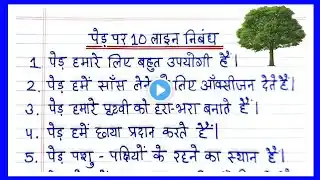 पेड़ पर 10 लाइन निबंध
1. पेड़ हमारे लिए बहुत उपयोगी हैं।
2. पेड़ हमें साँस लेने के लिए ऑक्सीजन देते हैं।
3. पेड़ हमारे पृथ्वी को हरा-भरा बनाते हैं।
4. पेड़ हमें छाया प्रदान करते हैं।
5. पेड़ पशु-पक्षियों के रहने का स्थान है।